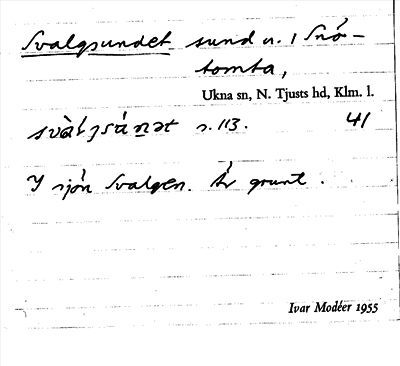 Svalgsundet sund n. i Snö-
tomta,
Ukna sn, N. Tjusts hd, Klm. l.
s. 113. 41
I sjön Svalgen. Är grunt.
Ivar Modéer 1955